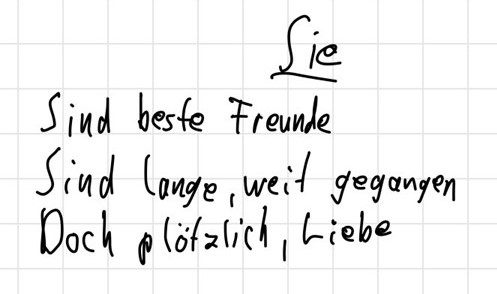 Sie
Sind beste Freunde
Sind lange, weit gegangen
Doch plötzlich, Liebe